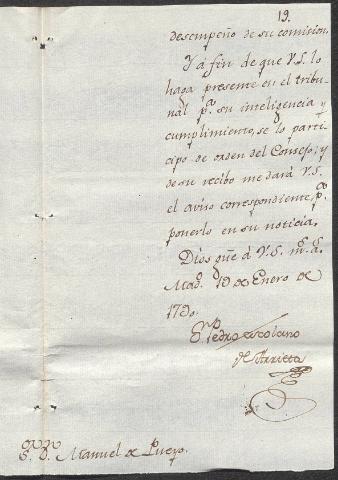 19.
desempeño de su comision.
Y á fin de que V.S. lo
haga presente en el tribu-
nal p.ª su inteligencia y
cumplimiento, se lo parti-
cipo de orden del Consejo; y
de su recibo me dará V.S.
el aviso correspondiente, p.ª
ponerlo en su noticia.
Dios gue á V.S. m.s a.s
Mad.d 19 de Enero de
D.n Pedro Escolano
de Arrieta
S.or D. Manuel de Pueyo.